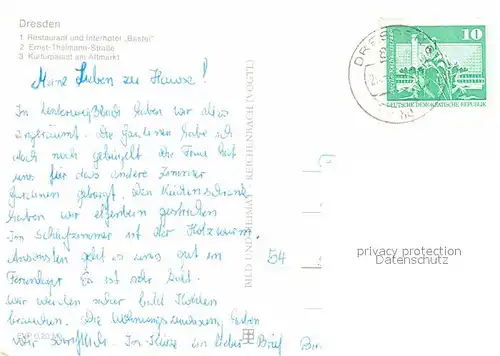 Dresden
1. Restaurant und Interhotel „Bastei"
2. Ernst-Thälmann-Straße
3. Kulturpalast am Altmarkt
Meine Lieben zu Hause!
In haben wir alles
angeräumt. Die Gardinen habe ich
auch noch gebügelt die Frau hat
uns für das andere Zimmer
Gardinen geborgt. Den Küchenschrank
haben wir elfenbein gestrichen
Im Schlafzimmer ist der Holzwurm.
Ansonsten geht es uns gut im
Es ist sehr kalt.
Wir werden sicher bald Kohlen
brauchen. Die Wohnungszuweisung haben
wir schriftlich. In Kürze ein lieber Brief
54
BILD UND HEIMAT REICHENBACH (VOGTL)
EVP 0,20 M
DRESDEN
10
DEUTSCHE DEMOKRATISCHE REPUBLIK
privacy protection
Datenschutz